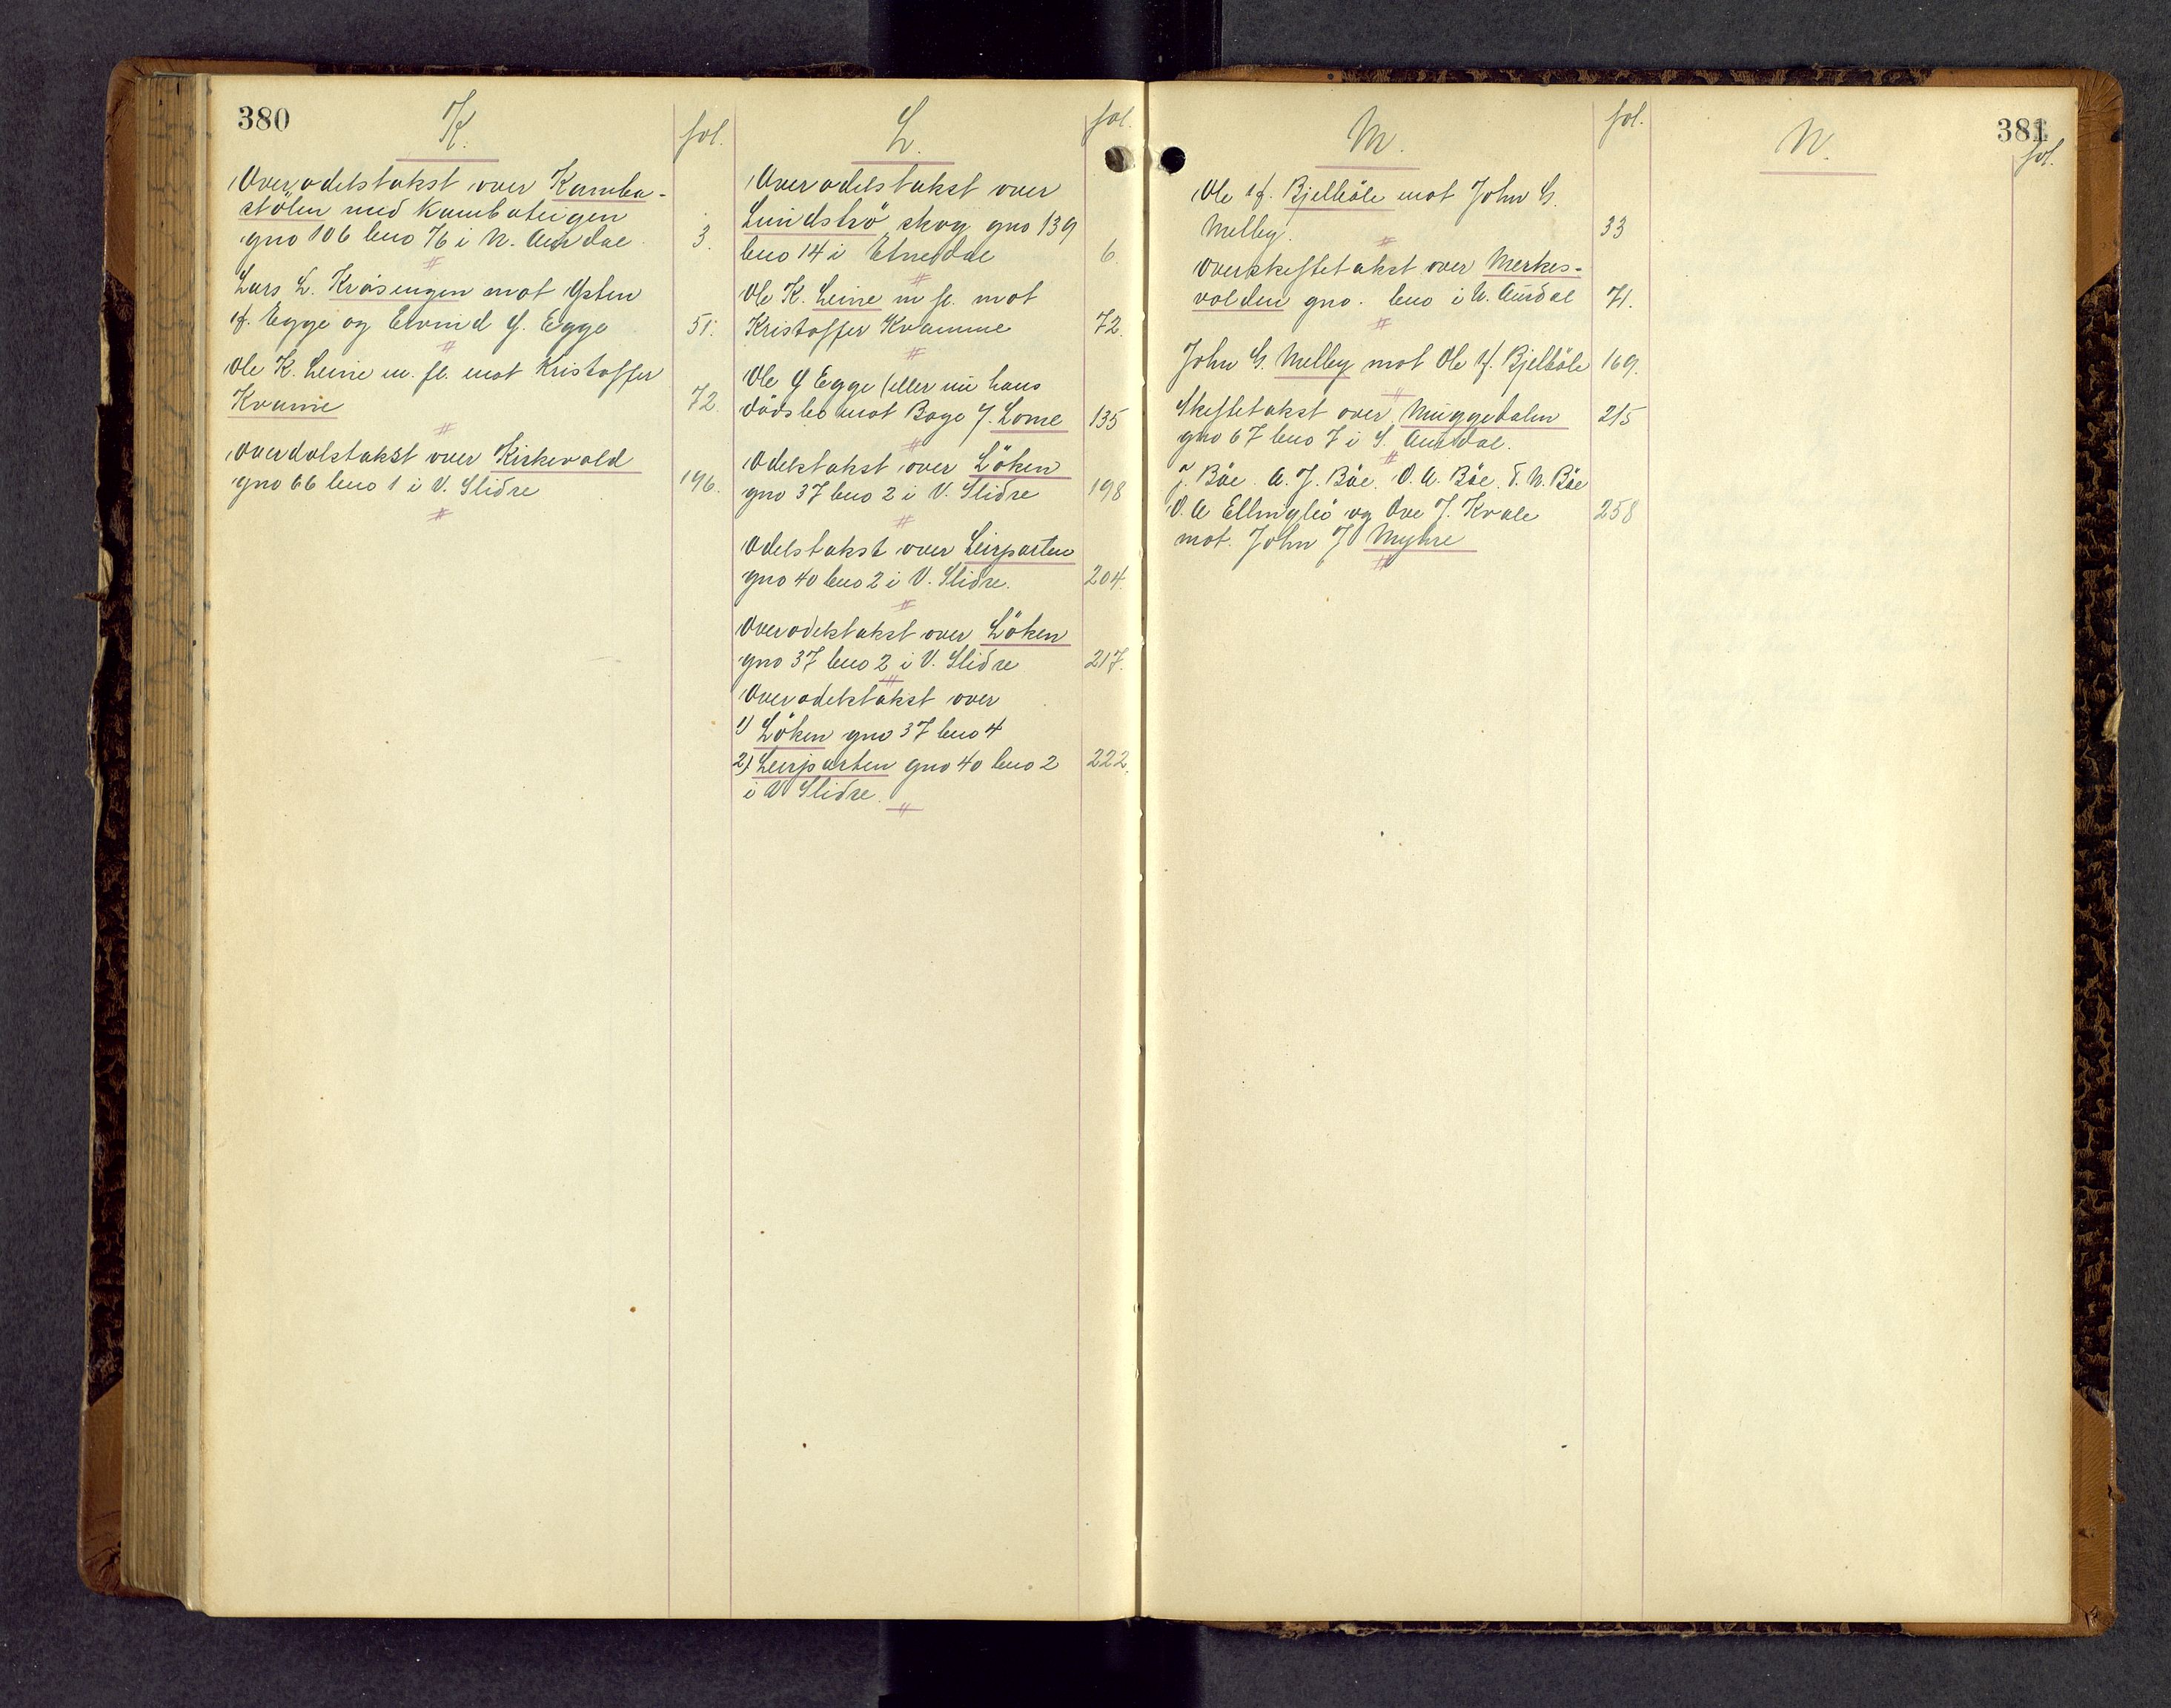 380
K.
fol.
Overodelstakst over Kamba-
stölen med Kambateigen
gno 106 bno 76 i N. Aurdal.
3.
Lars L. Kråsengen mot Østen
Egge og Eivind Ø. Egge
51.
Ole K. Leine m. fl. mot Kristoffer
Kvame
72.
Overodelstakst over Kirkevold
gno 66 bno 1 i V. Slidre
196.
L.
fol.
Overodelstakst over
Lundströ skog gno 139
bno 14 i Etnedal
6.
Ole K. Leine m fl. mot
Kristoffer Kvamme
72.
Ole Ø Egge (eller nu hans
dödsbo mot Boye J. Lome
135
Odelstakst over Löken
gno 37 bno 2 i V. Slidre
198
Odelstakst over Leirparten
gno 40 bno 2 i V. Slidre.
204.
Overodelstakst over Löken
gno 37 bno 2 i V. Slidre
217.
Overodelstakst over
1) Löken gno 37 bno 4
2) Leirparten gno 40 bno 2
222.
i V Slidre.
M.
fol.
Ole Bjelböle mot John G.
Melby.
33
Overskiftetakst over Merkes-
volden gno. bno i N. Aurdal
71.
John G. Melby mot Ole Bjelböle
169.
Skiftetakst over Muggedalen
215
gno 67 bno 7 i S. Aurdal.
J. Böe. A. J. Böe. O. A. Böe. T. N. Böe
O. A Ellingbö og Ove J. Kvale
258
mot. John J Myhre
N.
381
fol.